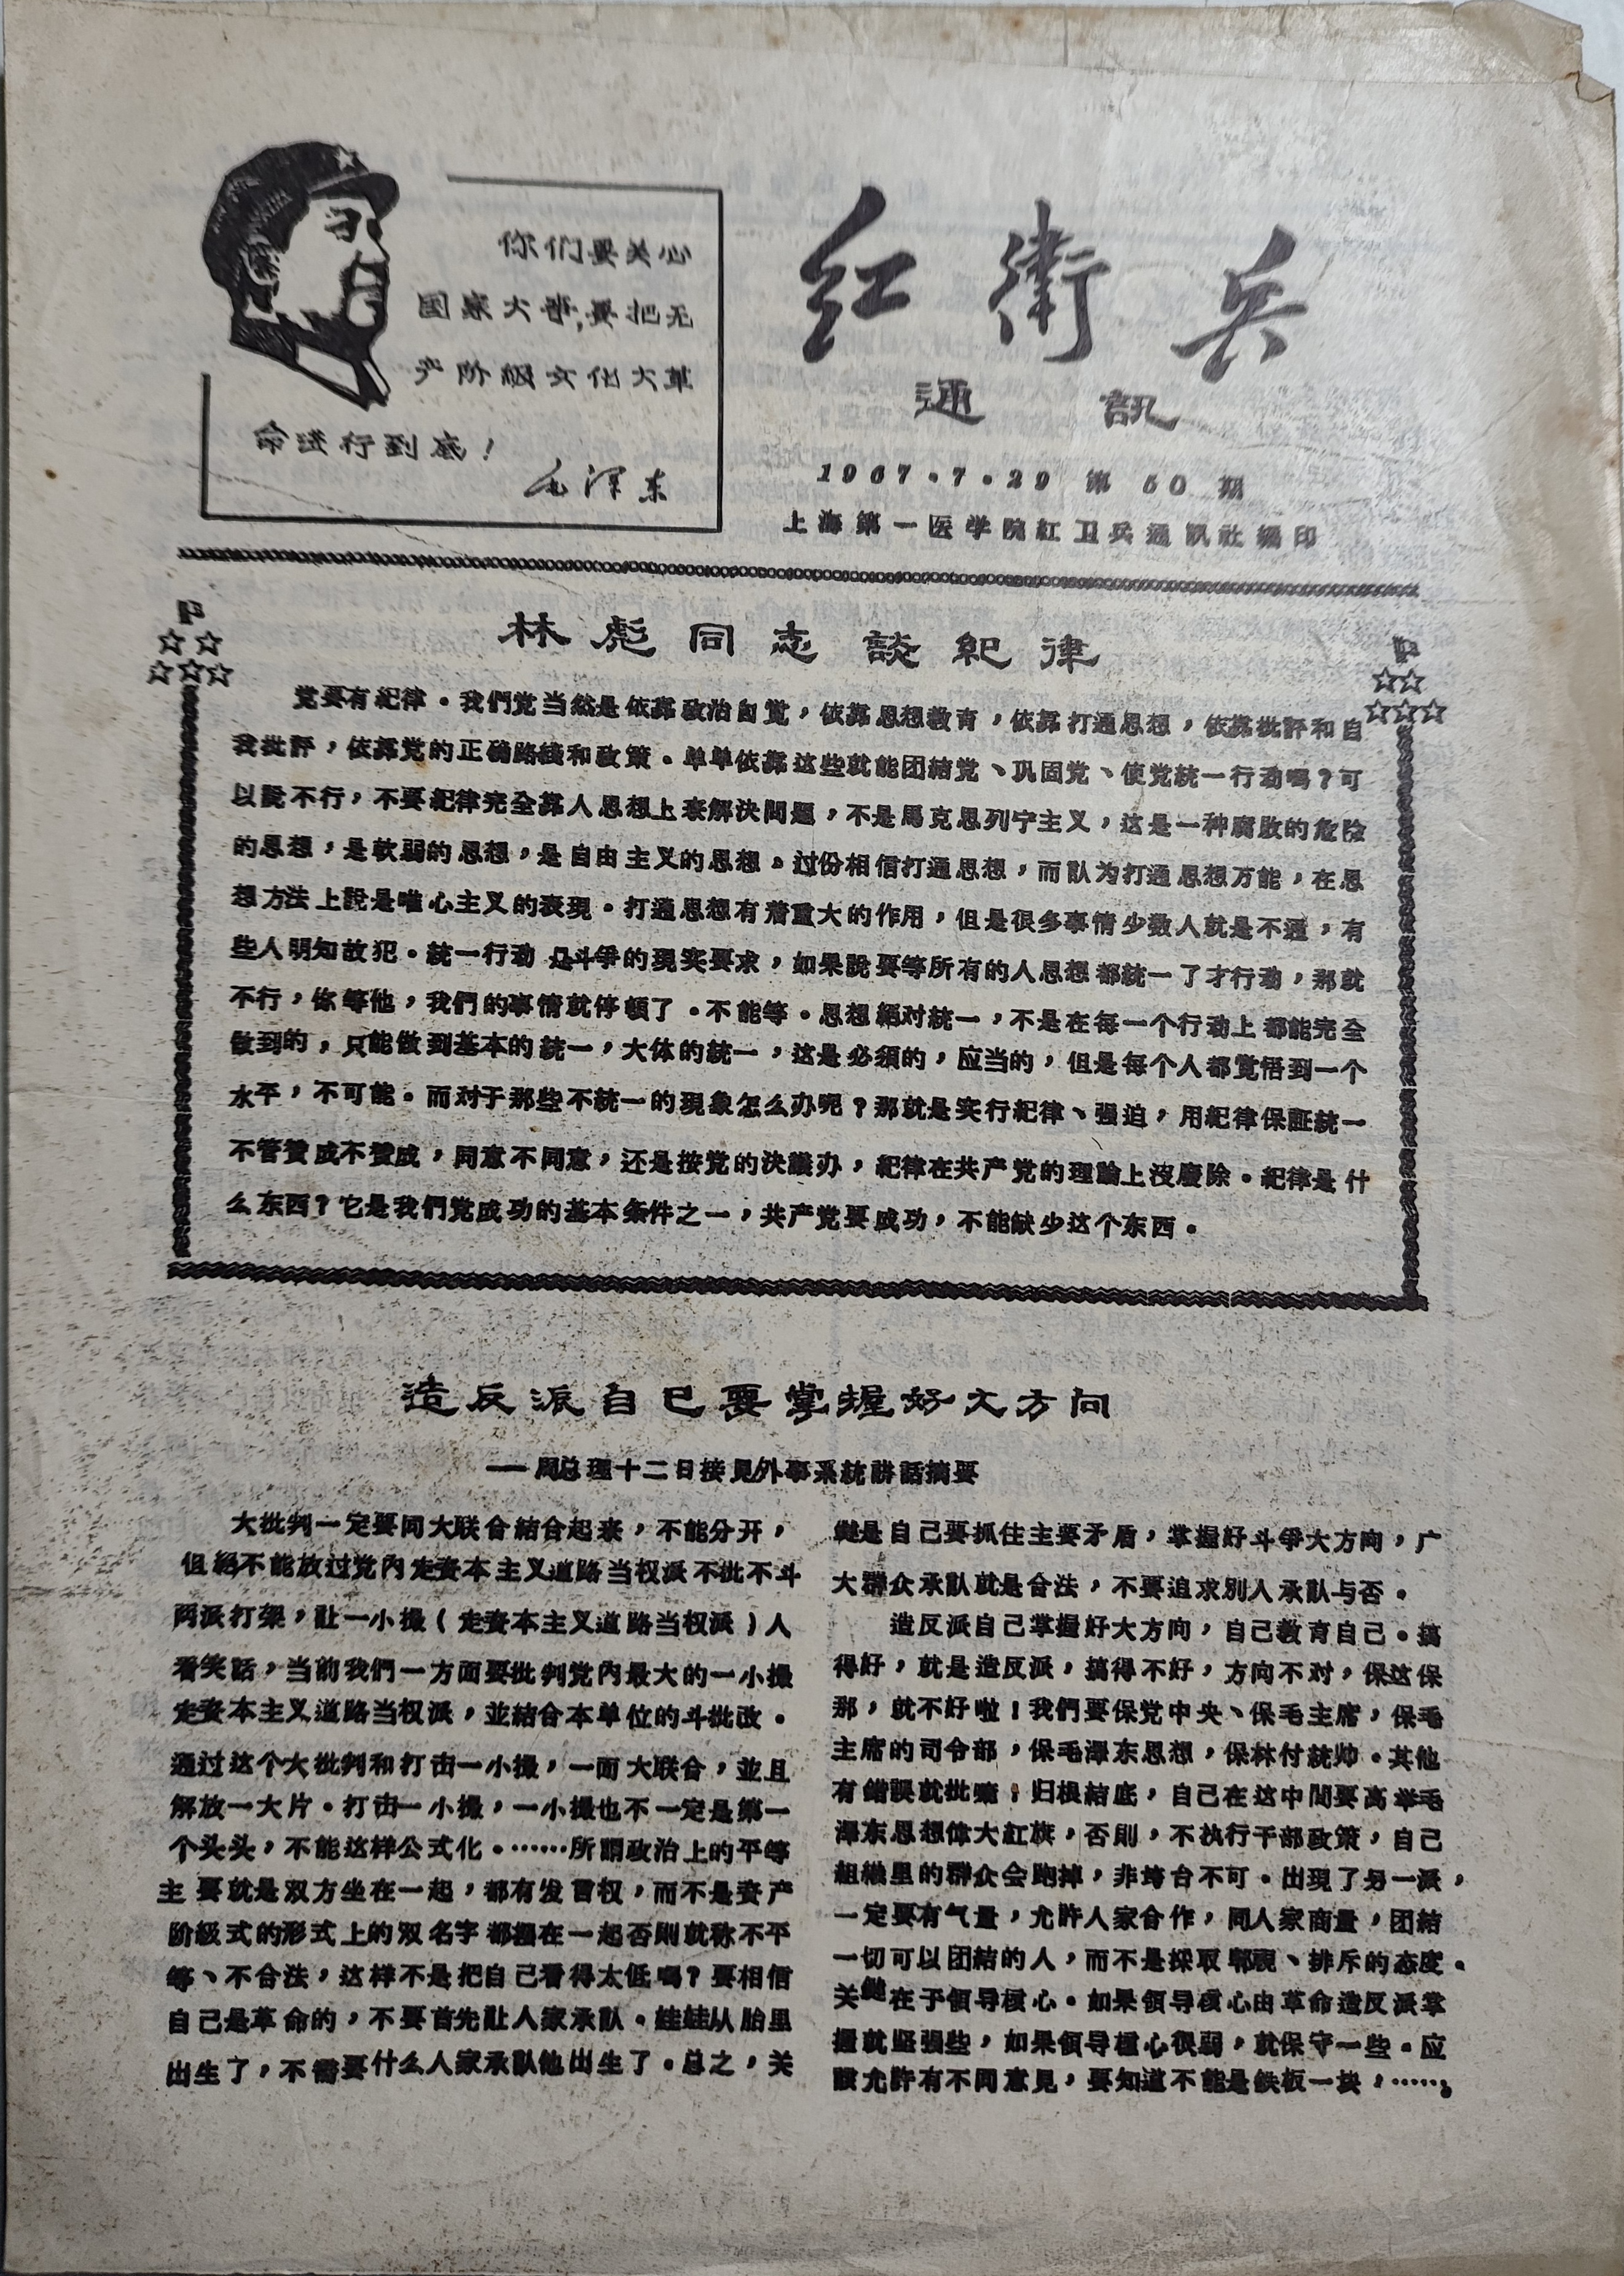 你们要关心
国家大事,要把无
产阶级文化大革
命进行到底！
毛泽东
红衛兵
通訊
1967.7.29 第 60 期
上海第一医学院紅卫兵通訊社編印
林彪同志談紀律
党要有紀律。我們党当然是依靠政治自覚，依靠思想教育，依靠打通思想，依靠批評和自
我批評，依靠党的正确路綫和政策。单单依靠这些就能团結党、巩固党、使党統一行动嗎？可
以說不行，不要紀律完全靠人思想上来解決問題，不是馬克思列宁主义，这是一种腐敗的危险
的思想，是軟弱的思想，是自由主义的思想。过份相信打通思想，而認为打通思想万能，在思
想方法上說是唯心主义的表現。打通思想有着重大的作用，但是很多事情少数人就是不通，有
些人明知故犯。統一行动是斗爭的現实要求，如果說要等所有的人思想都統一了才行动，那就
不行，你等他，我們的事情就停頓了。不能等。思想絕对統一，不是在每一个行动上都能完全
做到的，只能做到基本的統一，大体的統一，这是必須的，应当的，但是每个人都覚悟到一个
水平，不可能。而对于那些不統一的現象怎么办呢？那就是实行紀律、强迫，用紀律保証統一
不管贊成不贊成，同意不同意，还是按党的決議办，紀律在共产党的理論上沒廢除。紀律是什
么东西？它是我們党成功的基本条件之一，共产党要成功，不能缺少这个东西。
造反派自己要掌握好大方向
——周总理十二日接見外事系統講話摘要
大批判一定要同大联合結合起来，不能分开，
但絕不能放过党內走資本主义道路当权派不批不斗
两派打架，让一小撮（走資本主义道路当权派）人
看笑話，当前我們一方面要批判党內最大的一小撮
走資本主义道路当权派，並結合本单位的斗批改。
通过这个大批判和打击一小撮，一面大联合，並且
解放一大片。打击一小撮，一小撮也不一定是第一
个头头，不能这样公式化。……所謂政治上的平等
主要就是双方坐在一起，都有发言权，而不是資产
阶級式的形式上的双名字都摆在一起否則就称不平
等、不合法，这样不是把自己看得太低嗎？要相信
自己是革命的，不要首先让人家承認。娃娃从胎里
出生了，不需要什么人家承認他出生了。总之，关
鍵是自己要抓住主要矛盾，掌握好斗爭大方向，广
大群众承認就是合法，不要追求別人承認与否。
造反派自己掌握好大方向，自己教育自己。搞
得好，就是造反派，搞得不好，方向不对，保这保
那，就不好啦！我們要保党中央、保毛主席，保毛
主席的司令部，保毛澤东思想，保林付統帅。其他
有錯誤就批嘛；归根結底，自己在这中間要高举毛
澤东思想偉大紅旗，否則，不执行干部政策，自己
組織里的群众会跑掉，非垮台不可。出現了另一派，
一定要有气量，允許人家合作，同人家商量，团結
一切可以团結的人，而不是採取鄙視、排斥的态度。
关鍵在于領导核心。如果領导核心由革命造反派掌
握就坚强些，如果領导核心很弱，就保守一些。应
該允許有不同意見，要知道不能是鉄板一块，……。